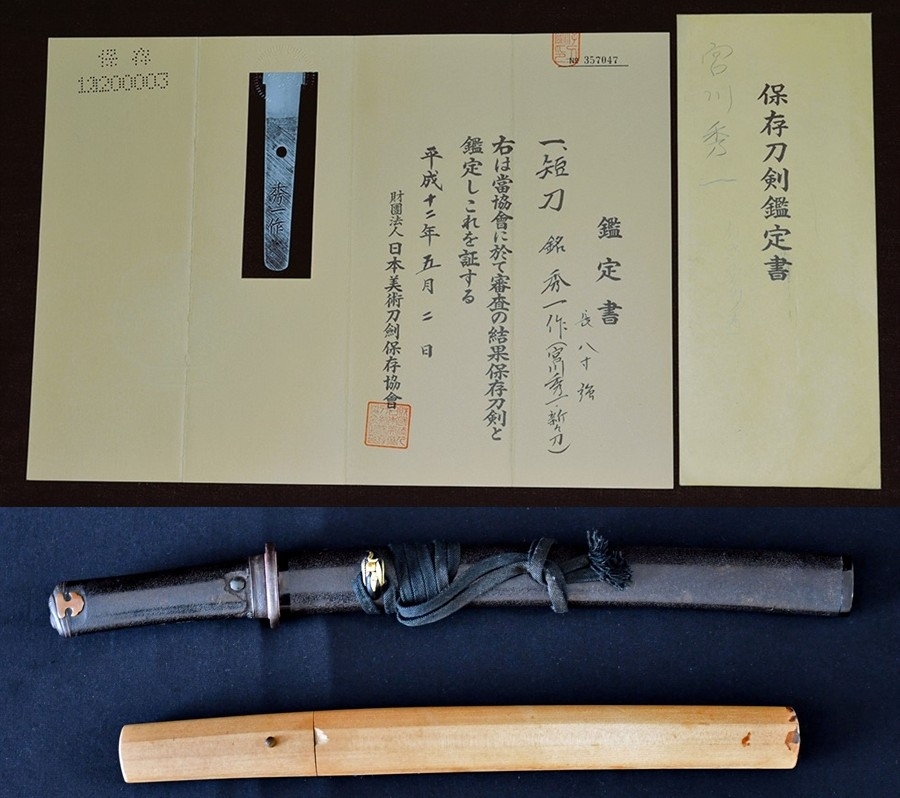 鑑定書
№ 357047
一、短刀 銘 秀一作(宮川秀一・新々刀)
長 八寸 強
右は當協會に於て審査の結果保存刀剣と
鑑定しこれを証する
平成十二年五月二日
財團法人 日本美術刀劍保存協會
秀一作
保存
保存刀剣鑑定書
宮川秀一